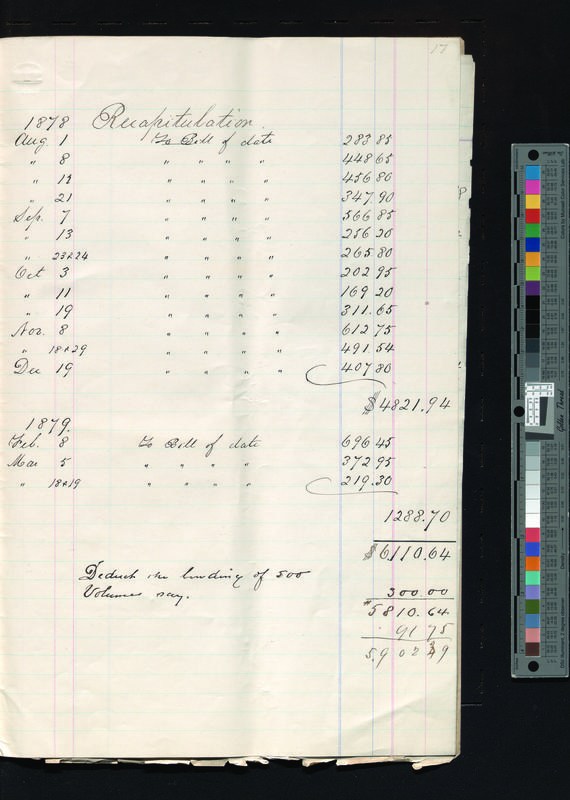 17
1878 Recapitulation.
Aug 1 To Bill of date 283 85
" 8 " " " " 448 65
" " " " " 456 80
" 21 " " " " 347.90
Sep. 7 " " " " 566.85
" 13 " " " " 256 20
" 23&24 " " " " 265 80
Oct 3 " " " " 202 95
" 11 " " " " 169 20
" 19 " " " " 311.65
Nov. 8 " " " " 612 75
" 18&29 " " " " 491.54
Dec 19 " " " " 407 80
$4821.94
1879.
Feb. 8 To Bill of date 696 45
Mar 5 " " " " 372 95
" 18&19 " " " " 219.30
1288.70
$6110.64
Deduct the binding of 500
Volumes say. 300.00
$5810.64
91 75
5,902 39